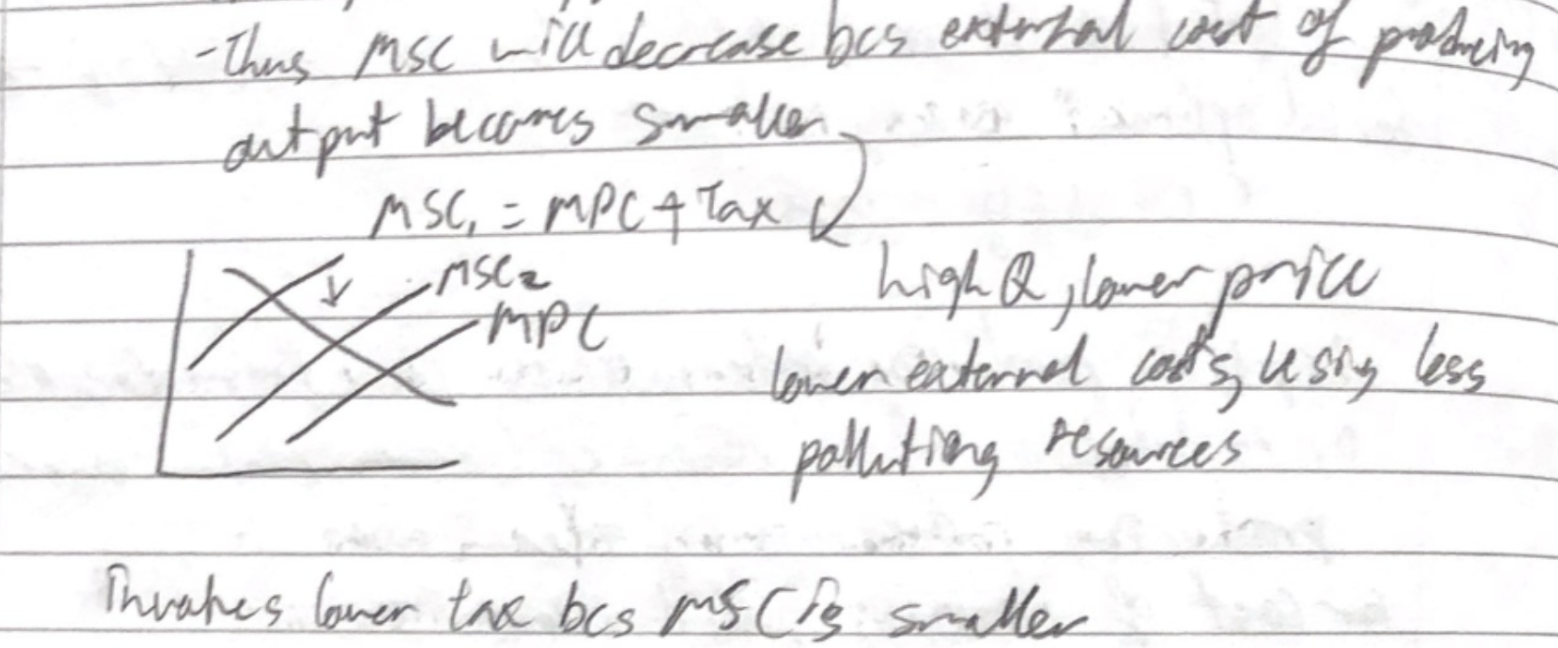 -Thus MSC will decrease bcs external cost of producing
output becomes smaller
MSC₁ = MPC + Tax
high Q, lower price
MSC₂
MPC
lower external costs, using less
polluting resources
Invokes lower tax bcs MSC is smaller